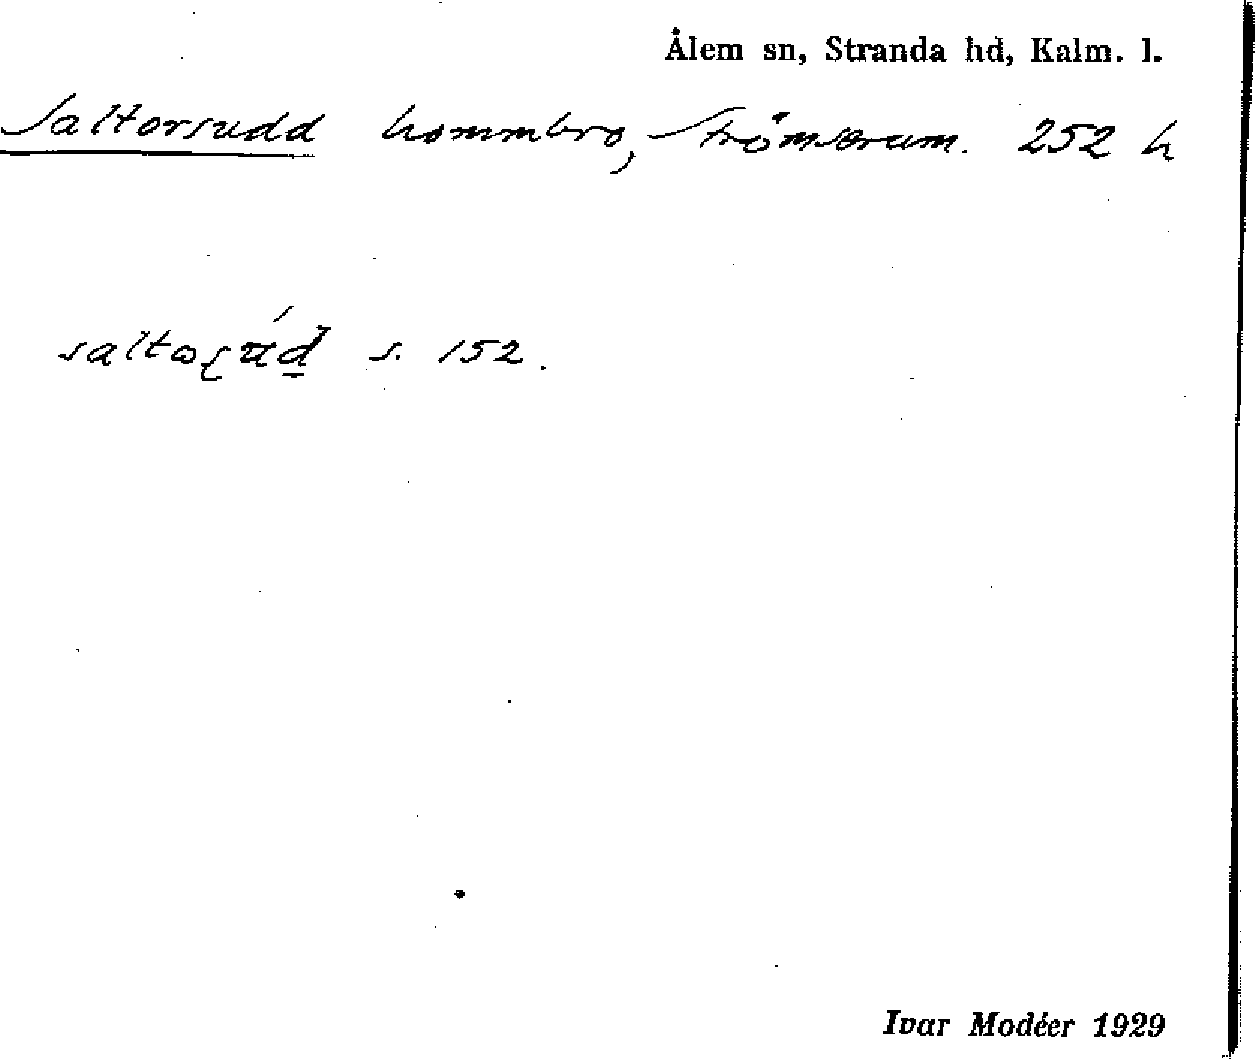 Ålem sn, Stranda hd, Kalm. l.
Saltorsudd hommbro, Strömserum. 252 h
s. 152.
Ivar Modéer 1929